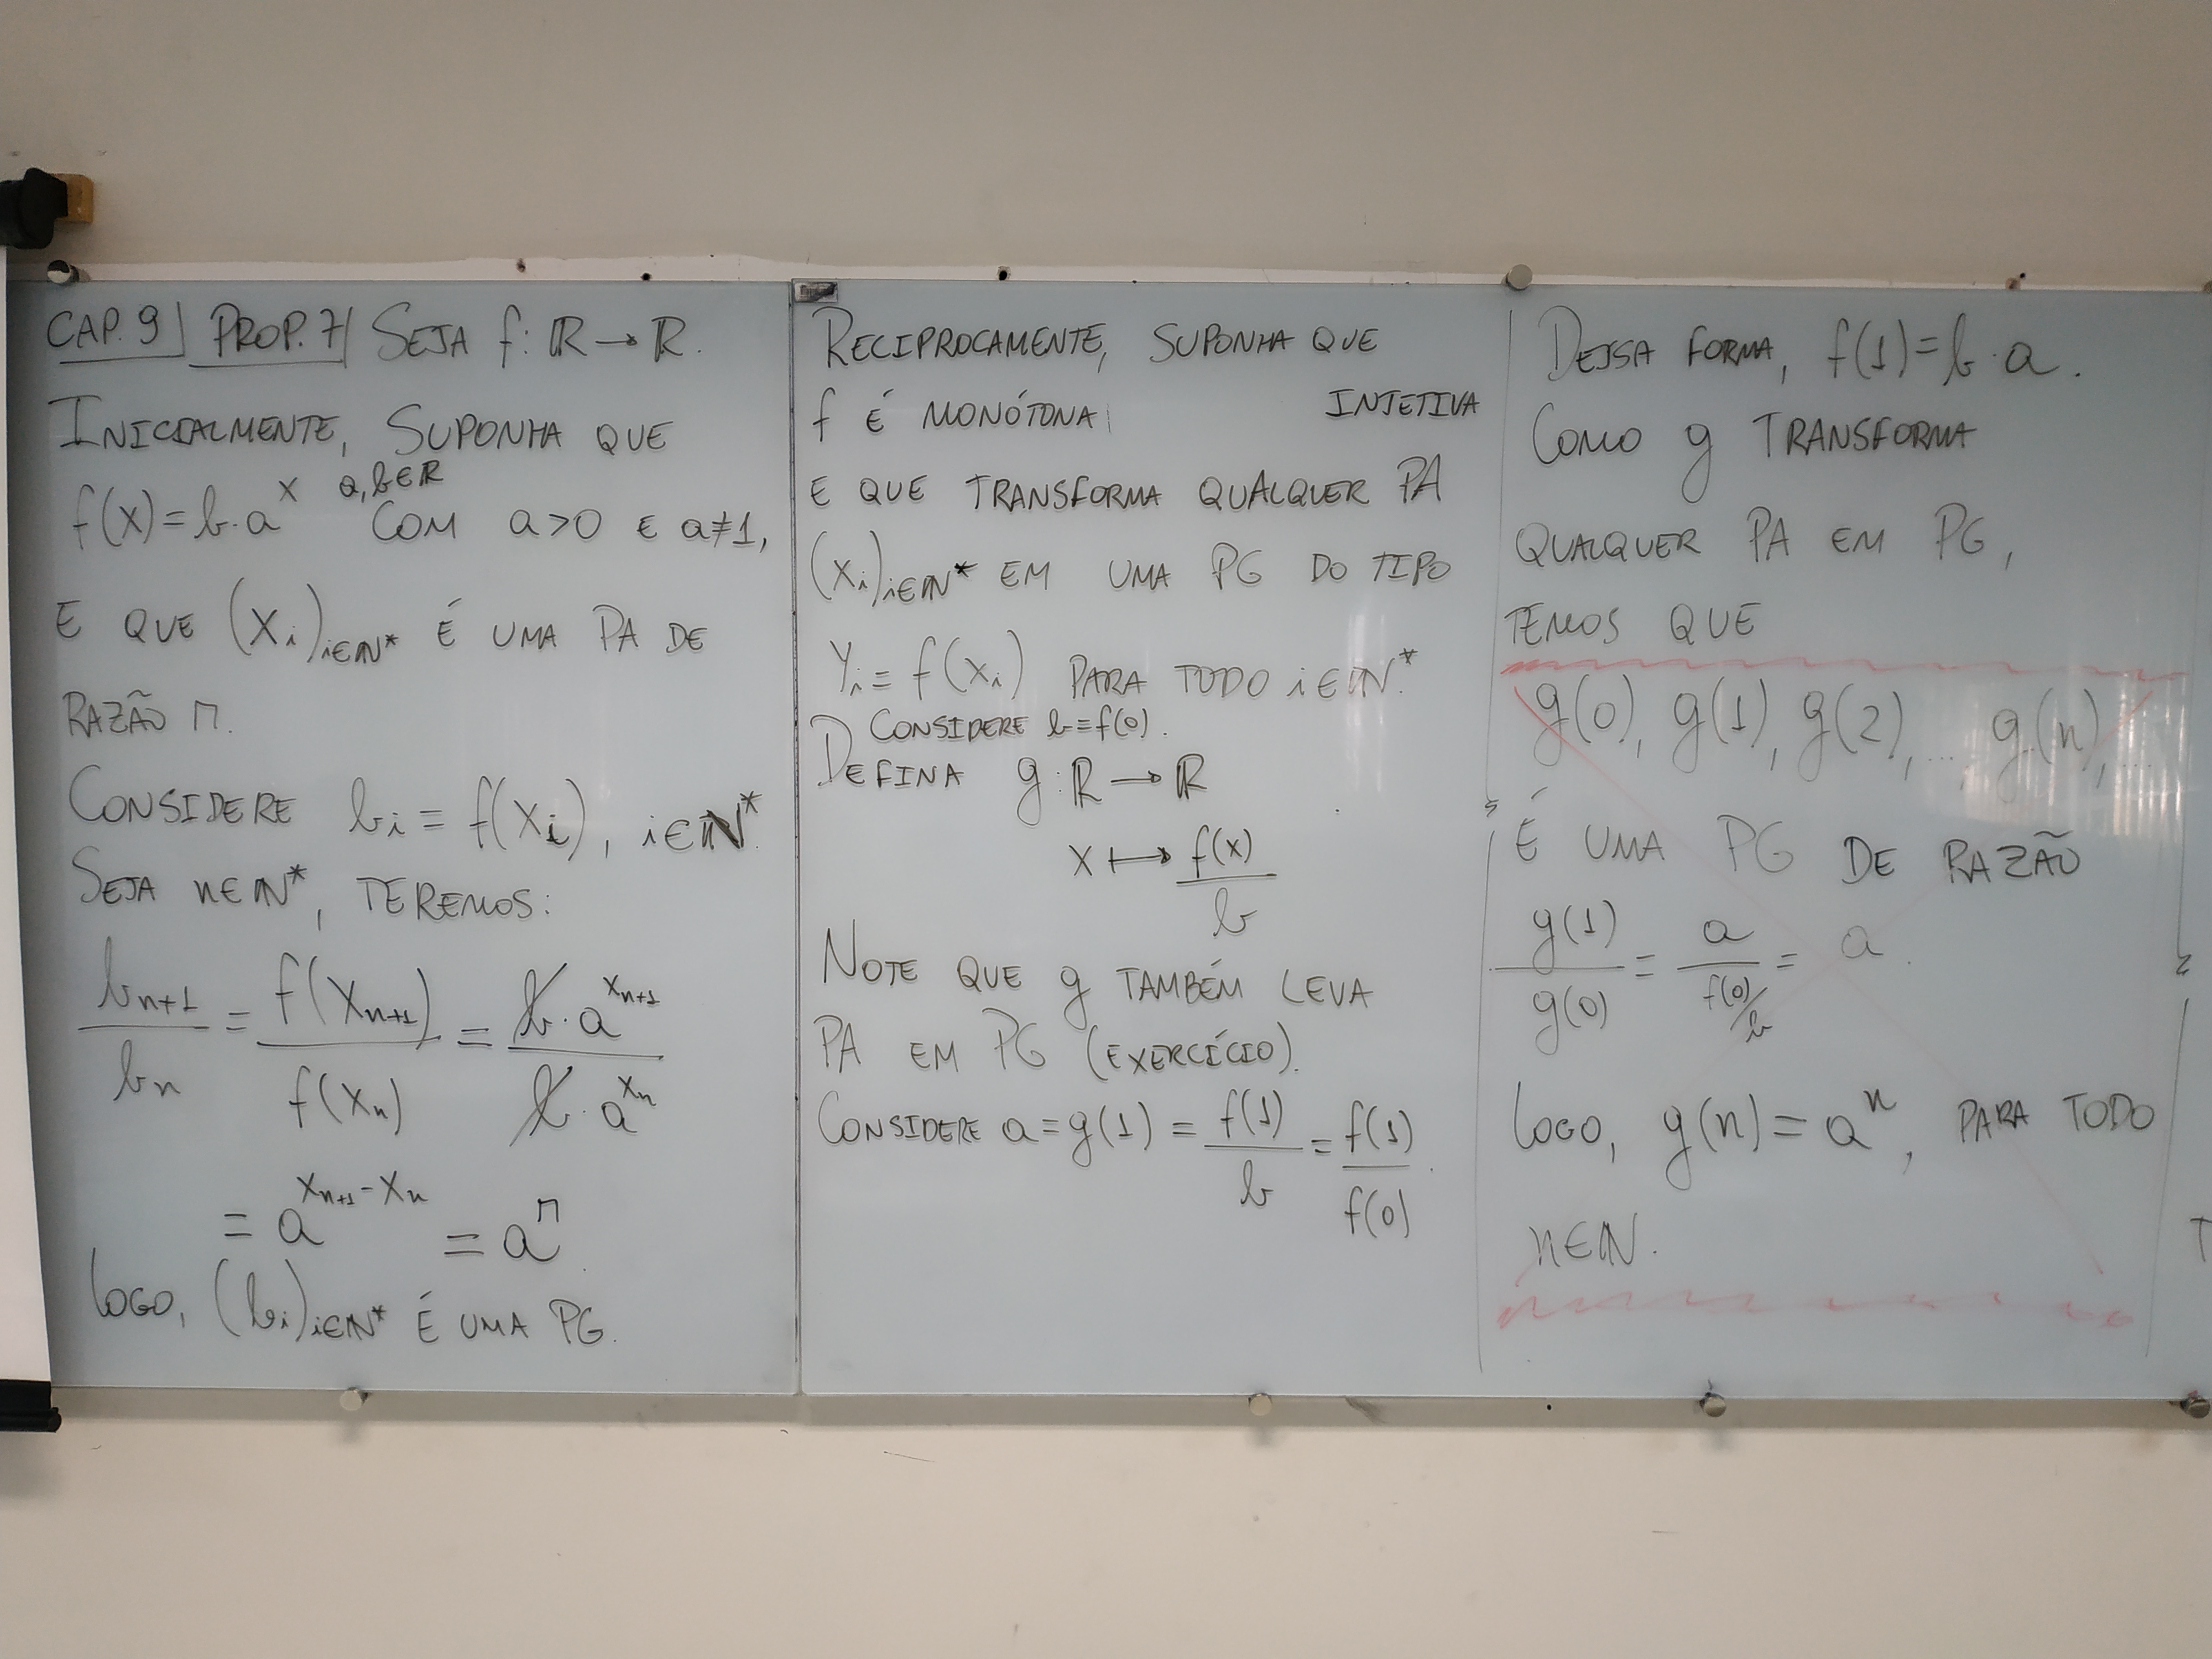 CAP. 9 | PROP. 7 | SEJA f: ℝ → ℝ.
INICIALMENTE, SUPONHA QUE
f(x) = b·a^x a,b∈ℝ COM a>0 E a≠1,
E QUE (x_i)_{i∈ℕ*} É UMA PA DE
RAZÃO r.
CONSIDERE b_i = f(x_i), i∈ℕ*.
SEJA n∈ℕ*, TEREMOS:
b_{n+1}/b_n = f(x_{n+1})/f(x_n) = b·a^{x_{n+1}}/b·a^{x_n}
= a^{x_{n+1}-x_n} = a^r.
LOGO, (b_i)_{i∈ℕ*} É UMA PG.
RECIPROCAMENTE, SUPONHA QUE
f É MONÓTONA INJETIVA
E QUE TRANSFORMA QUALQUER PA
(x_i)_{i∈ℕ*} EM UMA PG DO TIPO
Y_i = f(x_i) PARA TODO i∈ℕ*.
CONSIDERE b=f(0).
DEFINA g: ℝ → ℝ
x ↦ f(x)/b
NOTE QUE g TAMBÉM LEVA
PA EM PG (EXERCÍCIO).
CONSIDERE a = g(1) = f(1)/b = f(1)/f(0).
DESSA FORMA, f(1) = b·a.
COMO g TRANSFORMA
QUALQUER PA EM PG,
TEMOS QUE
g(0), g(1), g(2), ... g(n), ...
É UMA PG DE RAZÃO
g(1)/g(0) = a/(f(0)/b) = a.
LOGO, g(n) = a^n, PARA TODO
n∈ℕ.
T